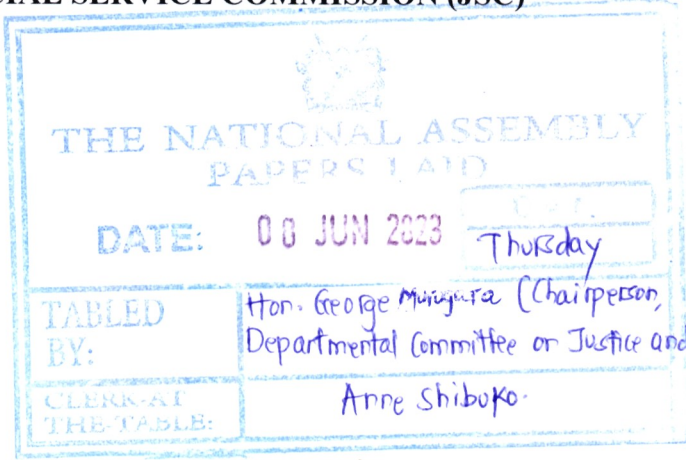 SERVICE COMMISSION (JSC)
THE NATIONAL ASSEMBLY
PAPERS LAID
DATE: 08 JUN 2023
Thursday
TABLED BY:
Hon. George Murugara (Chairperson,
Departmental Committee on Justice and
CLERK-AT THE-TABLE:
Anne Shibuko.